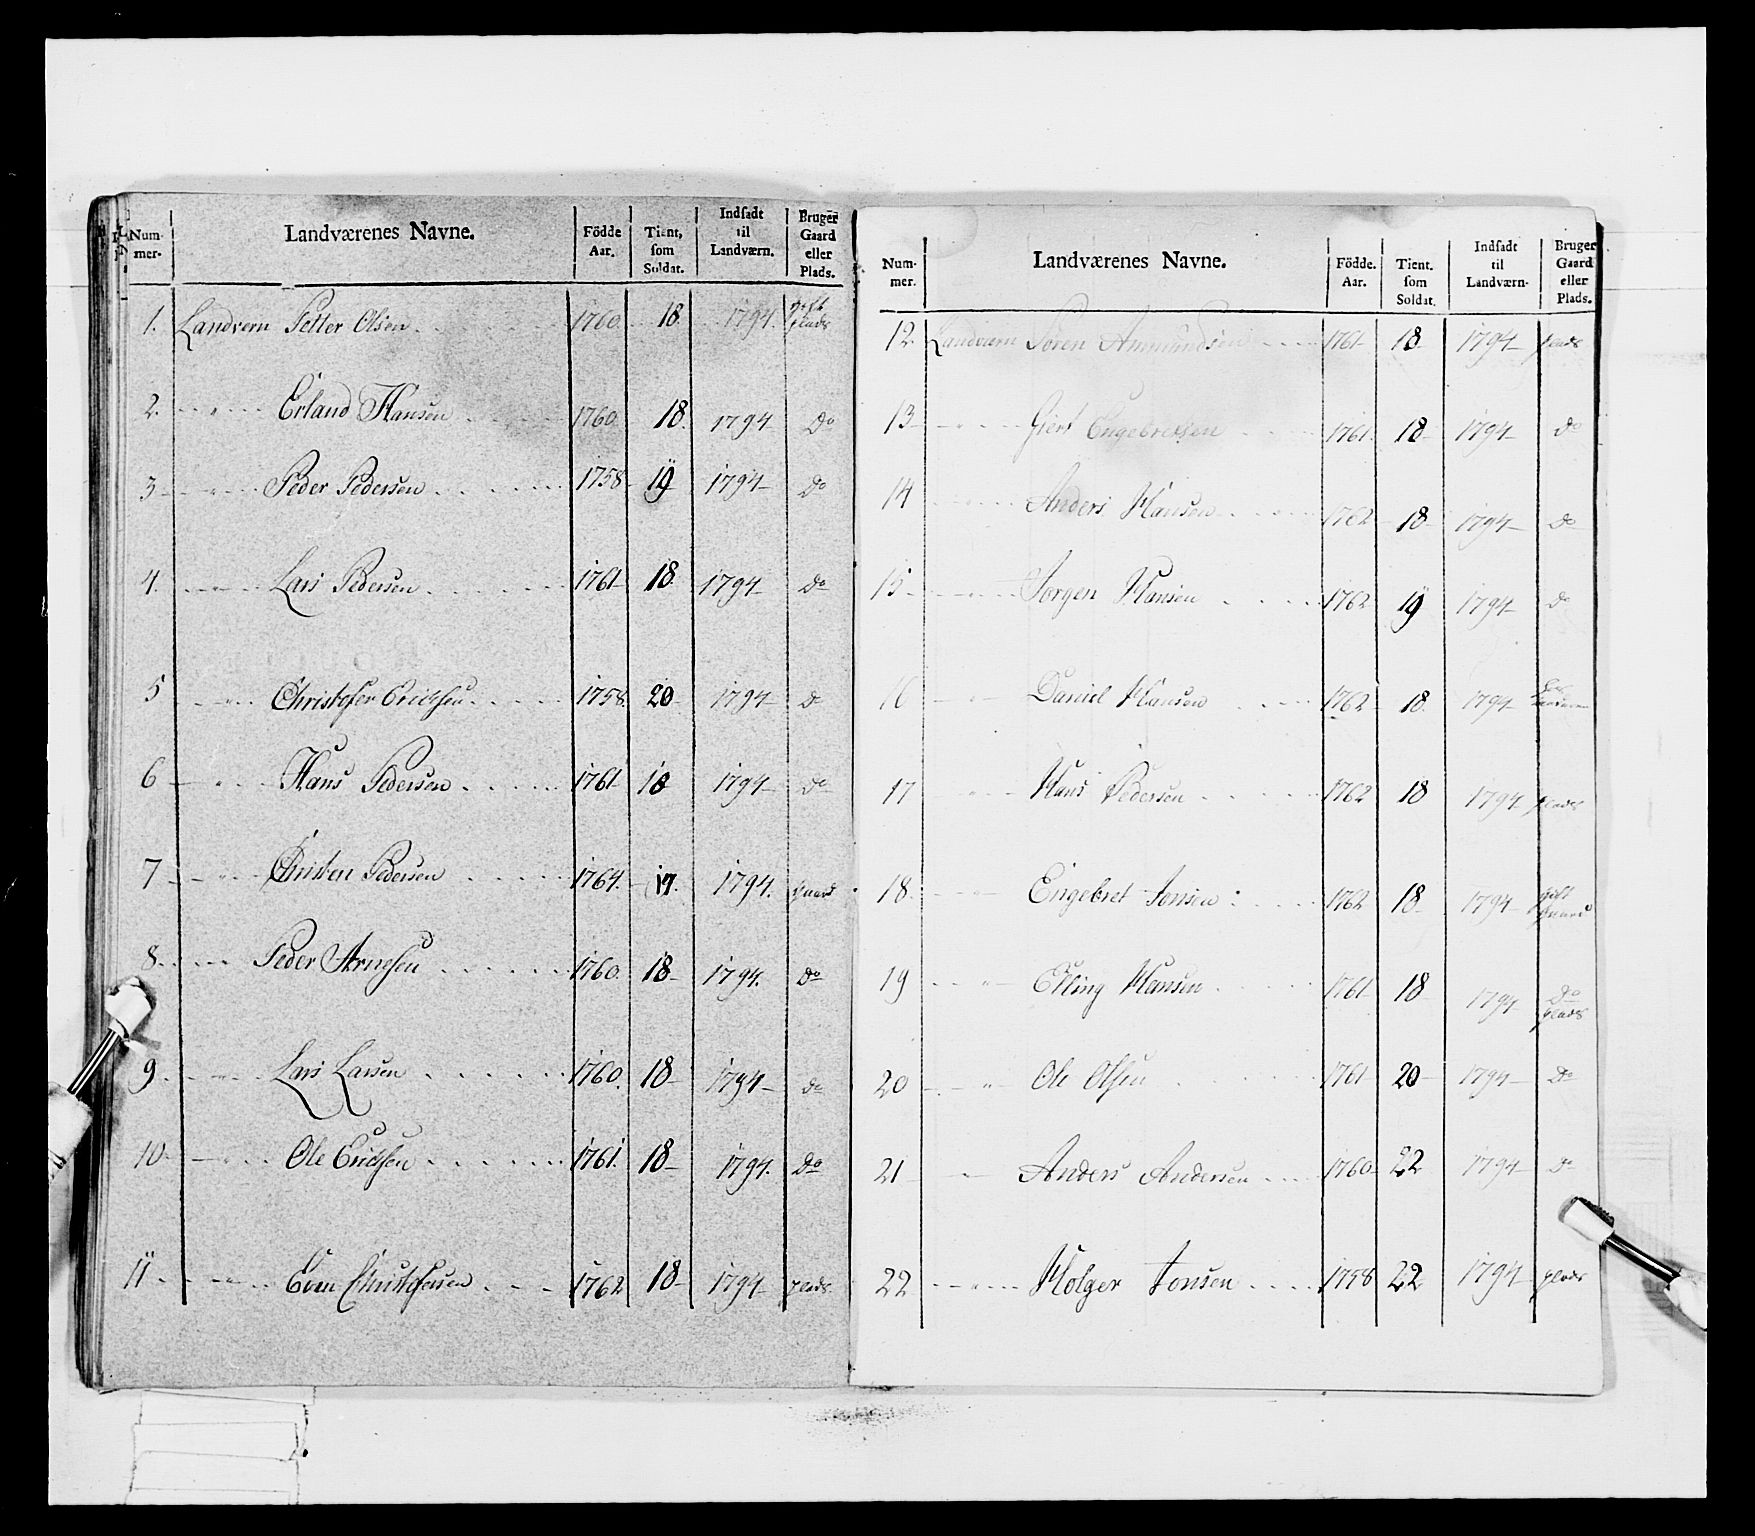 Num-mer. Landværenes Navne. Födde Aar. Tient, som Soldat. Indsadt til Landværn. Bruger Gaard eller Plads.
1. Landvern Petter Olsen 1760 18 1794. gift plads
2. " Erland Hansen 1760 18 1794 Do
3 " Peder Pedersen 1758 19 1794 Do
4. " Lars Pedersen 1761 18 1794 Do
5 " Christofer Erichsen 1758 20 1794 D
6 " Hans Pedersen 1761 18 1794 Do
7 " Christen Pedersen 1764. 17. 1794. Gaard
8. " Peder Arnesen 1760. 18 1794. Do
9 " Lars Larsen 1760. 18 1794 Do
10. " Ole Erichsen 1761. 18 1794. Do
11 " Even Christophersen 1762 18 1794 plads
Num-mer. Landværenes Navne. Födde. Aar. Tient. som Soldat. Indsadt til Landværn. Bruger Gaard eller Plads.
12 Landværn Søren Ammundsen 1761 18 1794 plads
13 " Giert Engebretsen 1761. 18 1794 Do
14 " Anders Hansen 1762 18 1794 Do
15 " Jørgen Hansen 1762 19 1794 Do
16 " Daniel Hansen 1762 18 1794
17 " Hans Pedersen 1762 18 1794 plads
18. " Engebret Jonsen 1762 18 1794 gift Gaard
19 " Elling Hansen 1761 18 1794 Do plads
20 " Ole Olsen 1761 20 1794 Do
21 " Anders Andersen 1760 22 1794 Do
22 " Holger Jonsen 1758 22 1794 plads